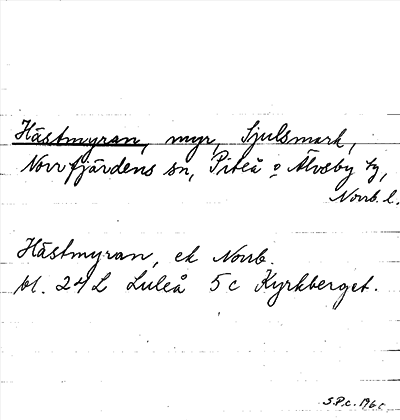 Hästmyran, myr, Sjulsmark,
Norrfjärdens sn, Piteå o Älvsby tg,
Norrb. l.
Hästmyran, ek Norrb.
bl. 24L Luleå 5c Kyrkberget.
S.P.C.